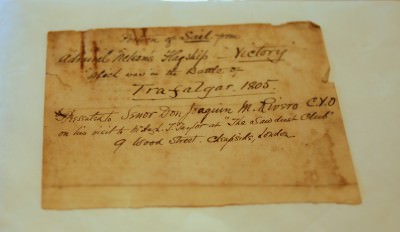 Portion of Sail from
Admiral Nelson's Flagship — Victory
which was in the Battle of
Trafalgar. 1805.
Presented to Senor Don Joaquin M. Rivero C.V.O
on his visit to J. Taylor at "The Sawdust Club"
9 Wood Street. Cheapside, London